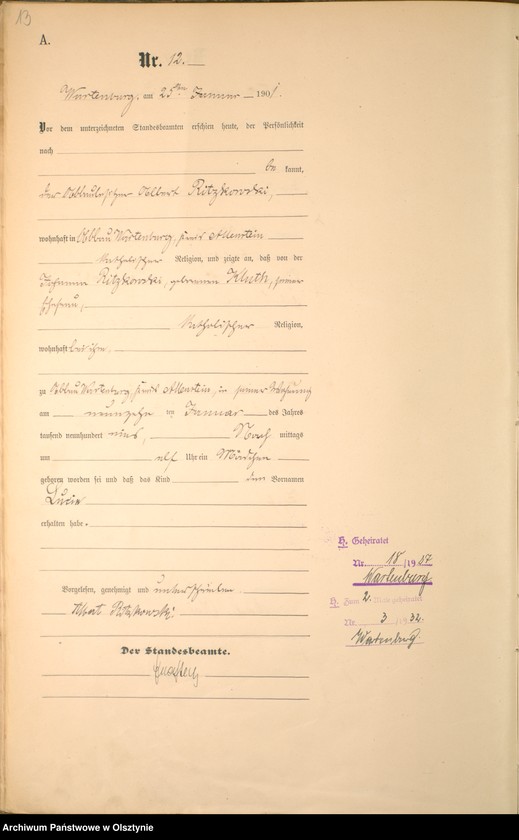 13
A.
Nr. 12.
Wartenburg, am 25ten Januar 1901.
Vor dem unterzeichneten Standesbeamten erschien heute, der Persönlichkeit
nach
be kannt,
der Albert Ritzkowski,
wohnhaft in Abbau Wartenburg, Kreis Allenstein
katholischer Religion, und zeigte an, daß von der
Johanna Ritzkowski, geborenen Kluth, seiner
Ehefrau,
katholischer Religion,
wohnhaft bei ihm,
zu Abbau Wartenburg, Kreis Allenstein, in seiner Wohnung
am neunzehn ten Januar des Jahres
tausend neunhundert eins, Nach mittags
um elf Uhr ein Mädchen
geboren worden sei und daß das Kind den Vornamen
Lucie
erhalten habe.
Vorgelesen, genehmigt und unterschrieben
Albert Ritzkowski.
Der Standesbeamte.
H. Geheiratet
Nr. 18/1927
Wartenburg
H. Zum 2. Male geheiratet
Nr. 3/1932.
Wartenburg
Archiwum Państwowe w Olsztynie